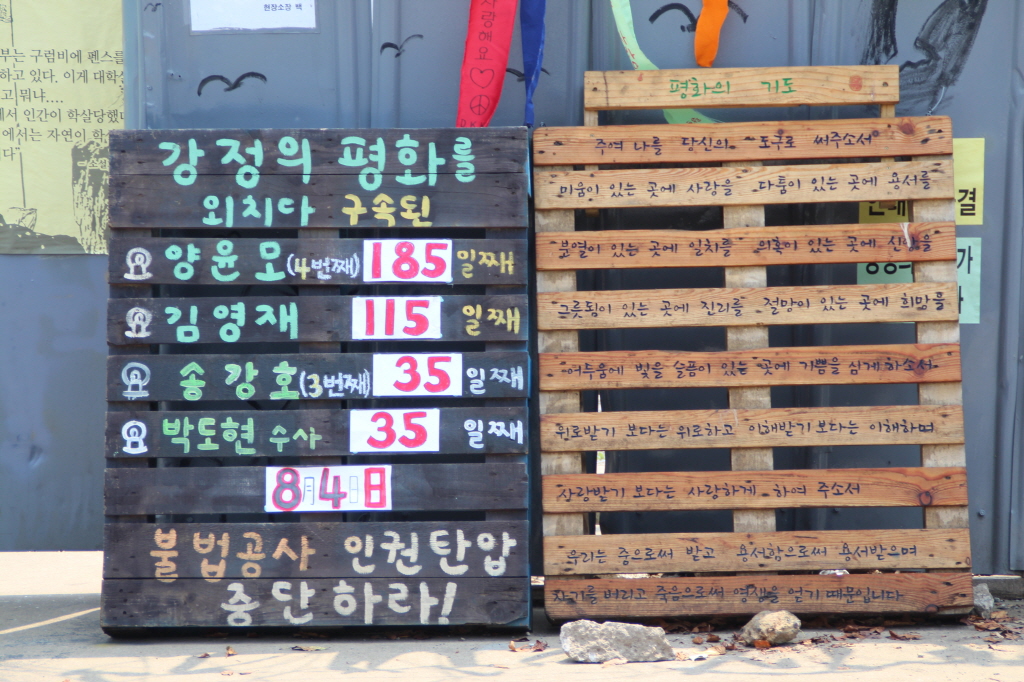 현장소장 백
사랑해요
부는 구럼비에 펜스를
하고 있다. 이게 대학살
고 뭐냐....
에서 인간이 학살당했다
에서는 자연이 학
다"
강정의 평화를
외치다 구속된
양윤모(4번째) 185일째
김영재 115일째
송강호(3번째) 35일째
박도현 수사 35일째
8月4日
불법공사 인권탄압
중단하라!
평화의 기도
주여 나를 당신의 도구로 써주소서
미움이 있는 곳에 사랑을 다툼이 있는 곳에 용서를
분열이 있는 곳에 일치를 의혹이 있는 곳에 신앙을
그릇됨이 있는 곳에 진리를 절망이 있는 곳에 희망을
어두움에 빛을 슬픔이 있는 곳에 기쁨을 심게하소서
위로받기 보다는 위로하고 이해받기보다는 이해하며
사랑받기 보다는 사랑하게 하여 주소서
우리는 줌으로써 받고 용서함으로써 용서받으며
자기를 버리고 죽음으로써 영생을 얻기 때문입니다
결
가